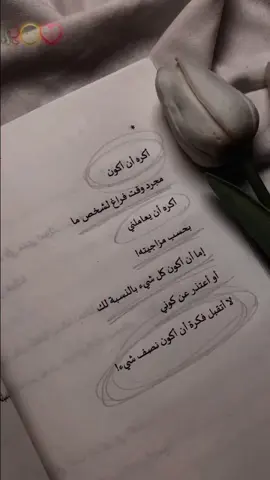 أكره أن أكون
مجرد وقت فراغ لشخص ما
أكره أن يعاملني
بحسب مزاجيته!
إما أن أكون كل شيء بالنسبة لك
أو أعتذر عن كوني
لا أتقبل فكرة أن أكون نصف شيء!